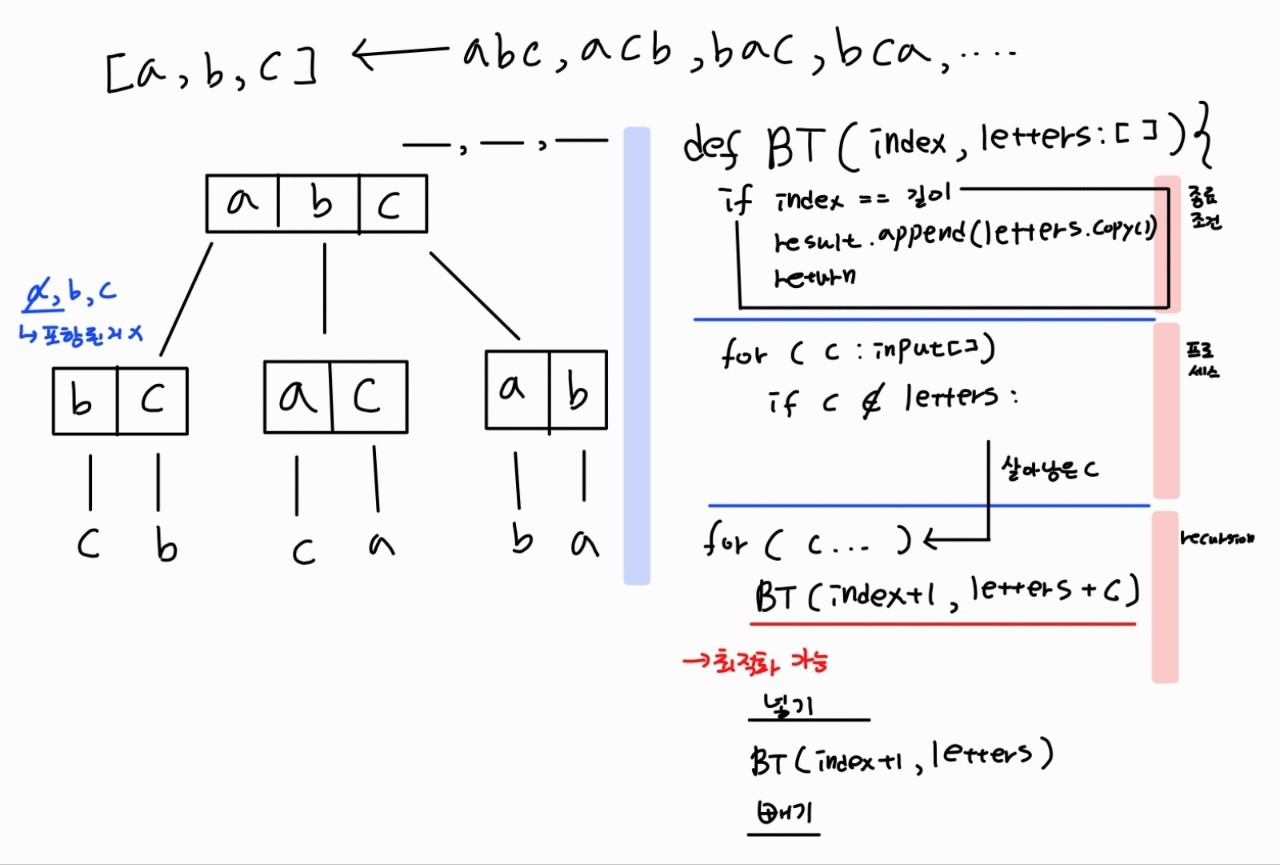 [a, b, c] ← abc, acb, bac, bca, ....
__, __, __
a b c
a, b, c
↳ 포함된거 x
b c
a c
a b
c b
c a
b a
def BT(index, letters:[]){
if index == 길이
result.append(letters.copy())
return
종료
조건
for ( c : input[])
if c ∉ letters :
프로
세스
살아남은 c
for ( c... )
BT(index+1, letters + c)
recursion
→ 최적화 가능
넣기
BT(index+1, letters)
빼기